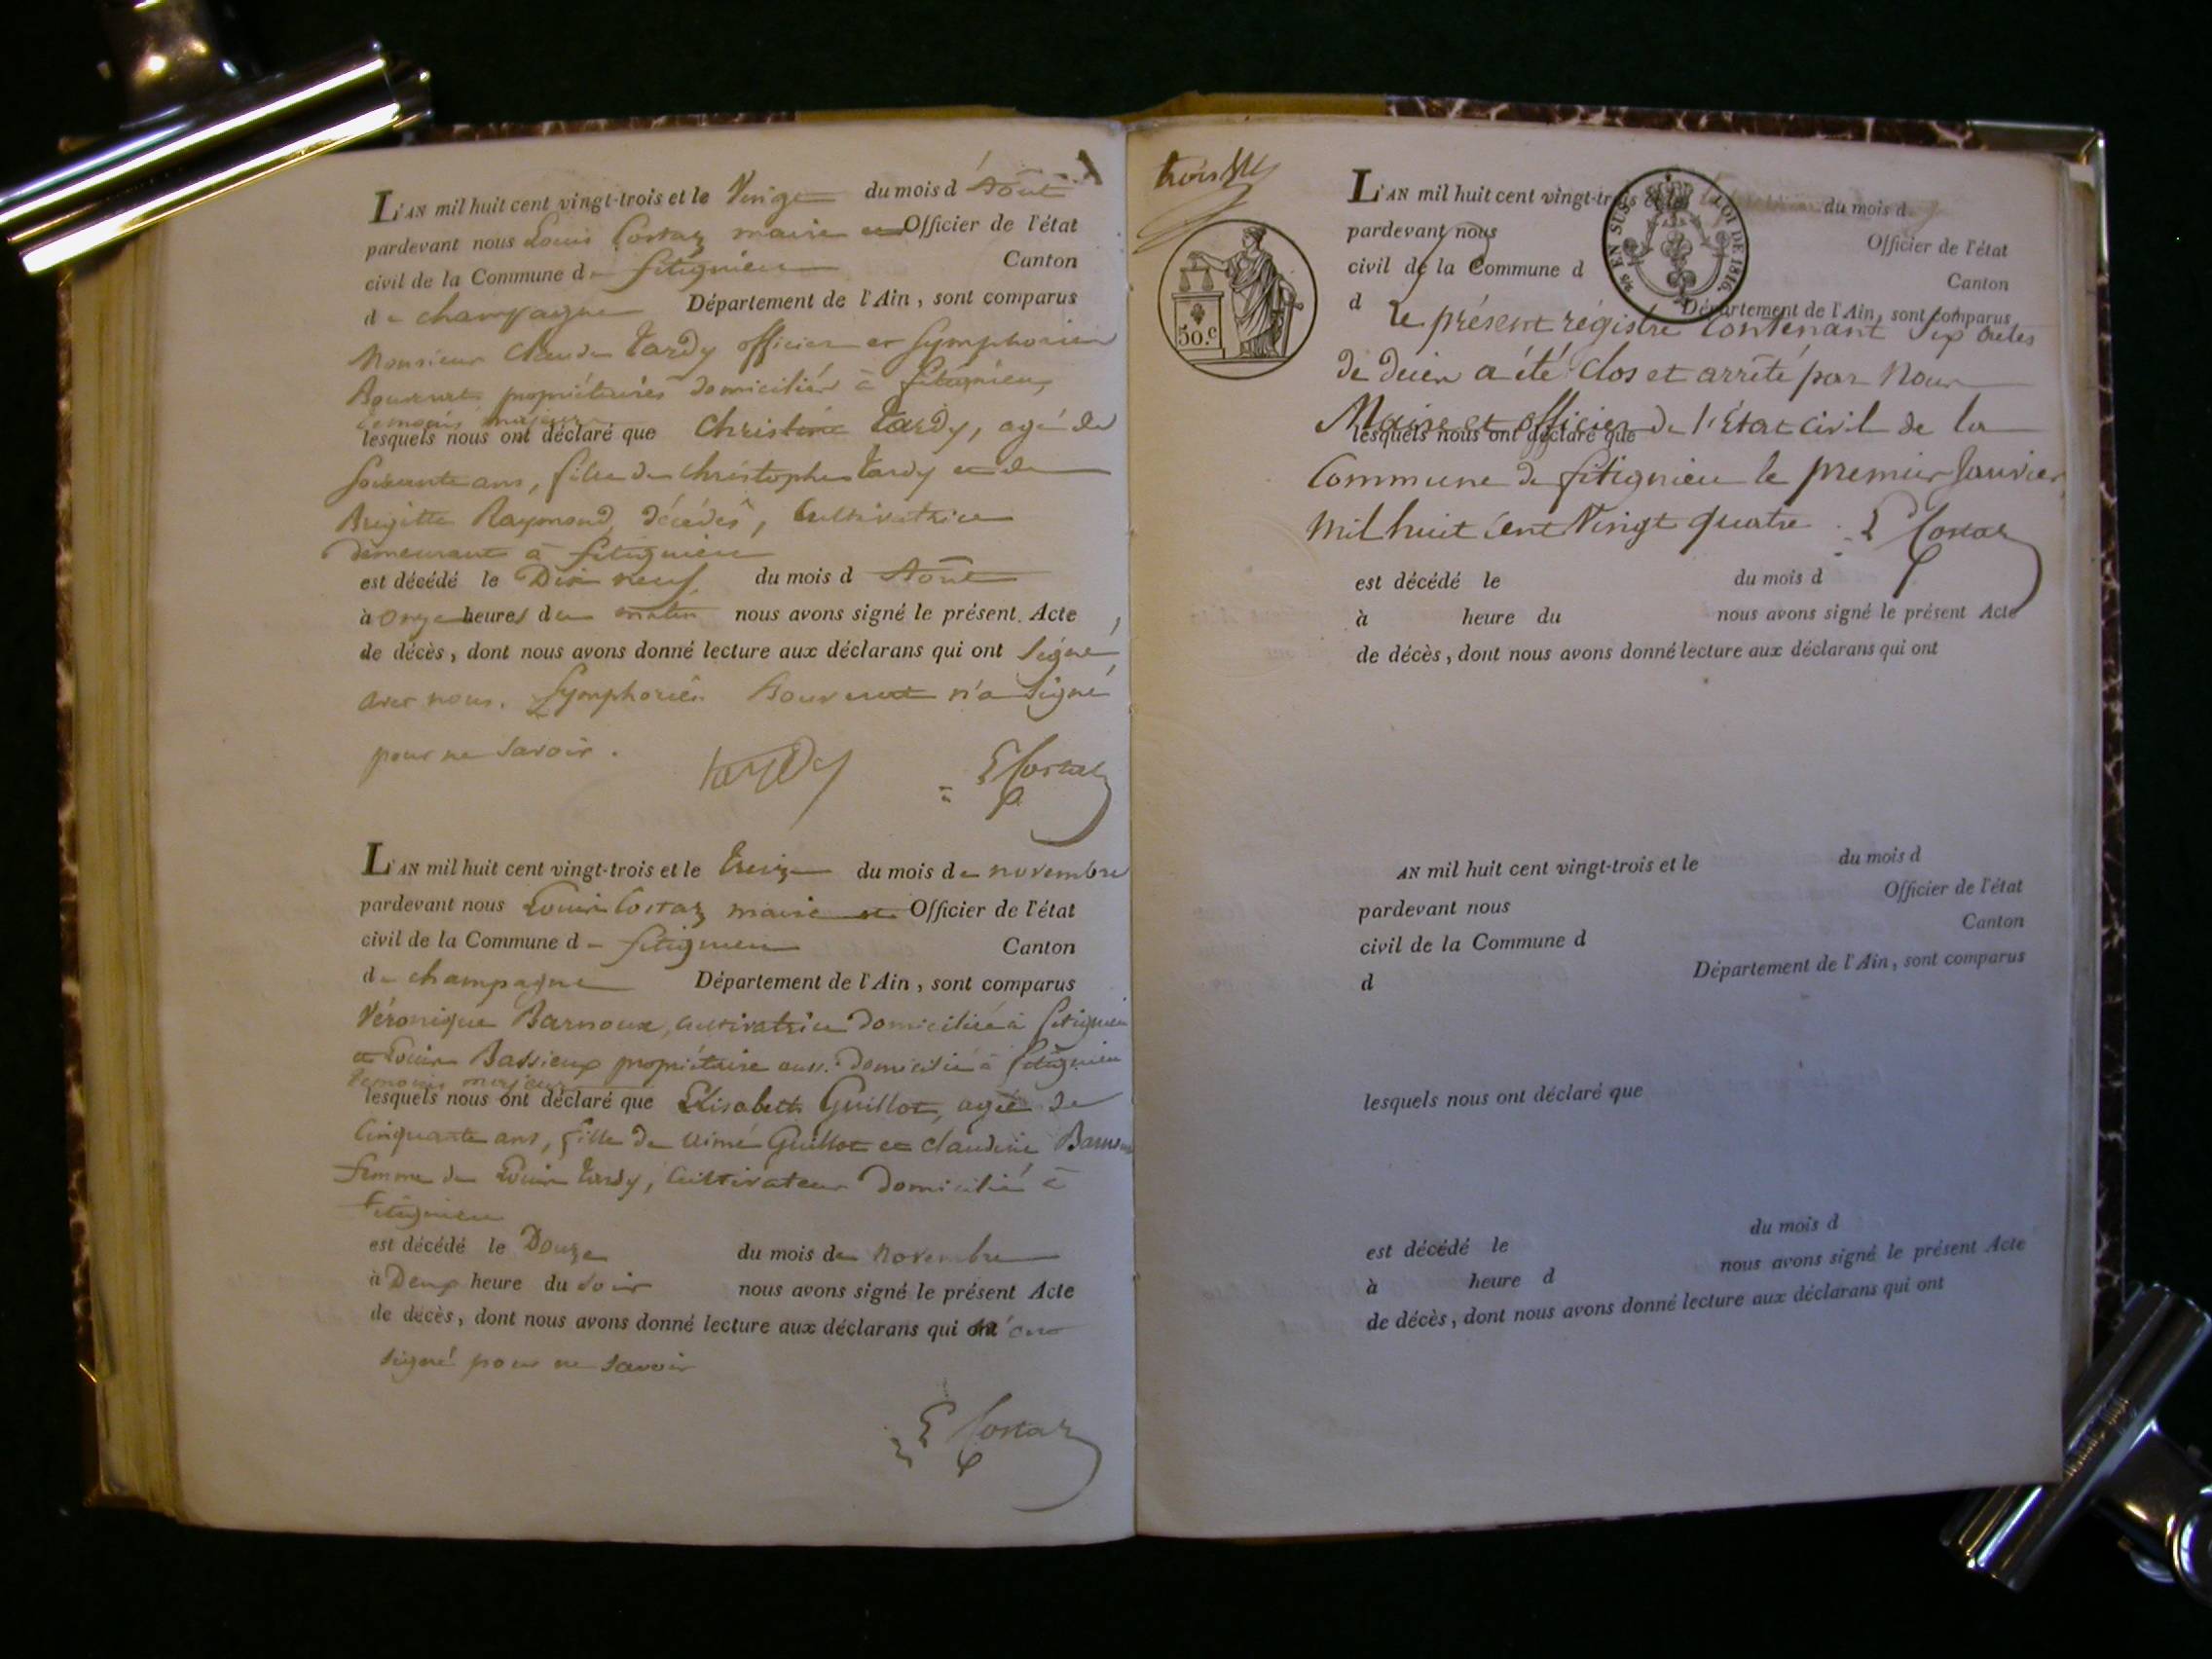 L'AN mil huit cent vingt-trois et le Vingt du mois d'Août
pardevant nous Louis Costaz maire et Officier de l'état
civil de la Commune de fitignieu Canton
de champagne Département de l'Ain, sont comparus
Monsieur Claude Tardy officier et Symphorien
Bouvent propriétaires domiciliés à fitignieu,
temoins majeurs
lesquels nous ont déclaré que Christine Tardy, agé de
Soixante ans, fille de Christophe Tardy et de
Brigitte Raymond, décédés, Cultivatrice
demeurant à fitignieu
est décédé le Dix neuf du mois d Août
à onze heures du matin nous avons signé le présent Acte
de décès, dont nous avons donné lecture aux déclarans qui ont signé
avec nous. Symphorien n'a signé
pour ne savoir.
tardy L Costaz
L'AN mil huit cent vingt-trois et le treize du mois de novembre
pardevant nous Louis Costaz maire et Officier de l'état
civil de la Commune de fitignieu Canton
de champagne Département de l'Ain, sont comparus
Véronique Barnoux, cultivatrice domiciliée à fitignieu
et Louis Bassieux propriétaire aussi domicilié à fitignieu
temoins majeurs
lesquels nous ont déclaré que Elisabeth Guillot, agée de
Cinquante ans, fille de Aimé Guillot et claudine
femme de Louis Tardy, Cultivateur domicilié à
fitignieu
est décédé le Douze du mois de novembre
à Deux heure du soir nous avons signé le présent Acte
de décès, dont nous avons donné lecture aux déclarans qui n'ont
signé pour ne savoir
L Costaz
trois
50.c
25 EN SUS. LOI DE 1816.
L'AN mil huit cent vingt-trois et le du mois d
pardevant nous Officier de l'état
civil de la Commune d Canton
d Département de l'Ain, sont comparus
Le présent régistre Contenant Six actes
de décès a été clos et arrêté par Nous
Maire et officier de l'État civil de la
lesquels nous ont déclaré que
Commune de fitignieu le premier Janvier
mil huit Cent Vingt quatre. L Costaz
est décédé le du mois d
à heure du nous avons signé le présent Acte
de décès, dont nous avons donné lecture aux déclarans qui ont
AN mil huit cent vingt-trois et le du mois d
pardevant nous Officier de l'état
civil de la Commune d Canton
d Département de l'Ain, sont comparus
lesquels nous ont déclaré que
est décédé le du mois d
à heure d nous avons signé le présent Acte
de décès, dont nous avons donné lecture aux déclarans qui ont